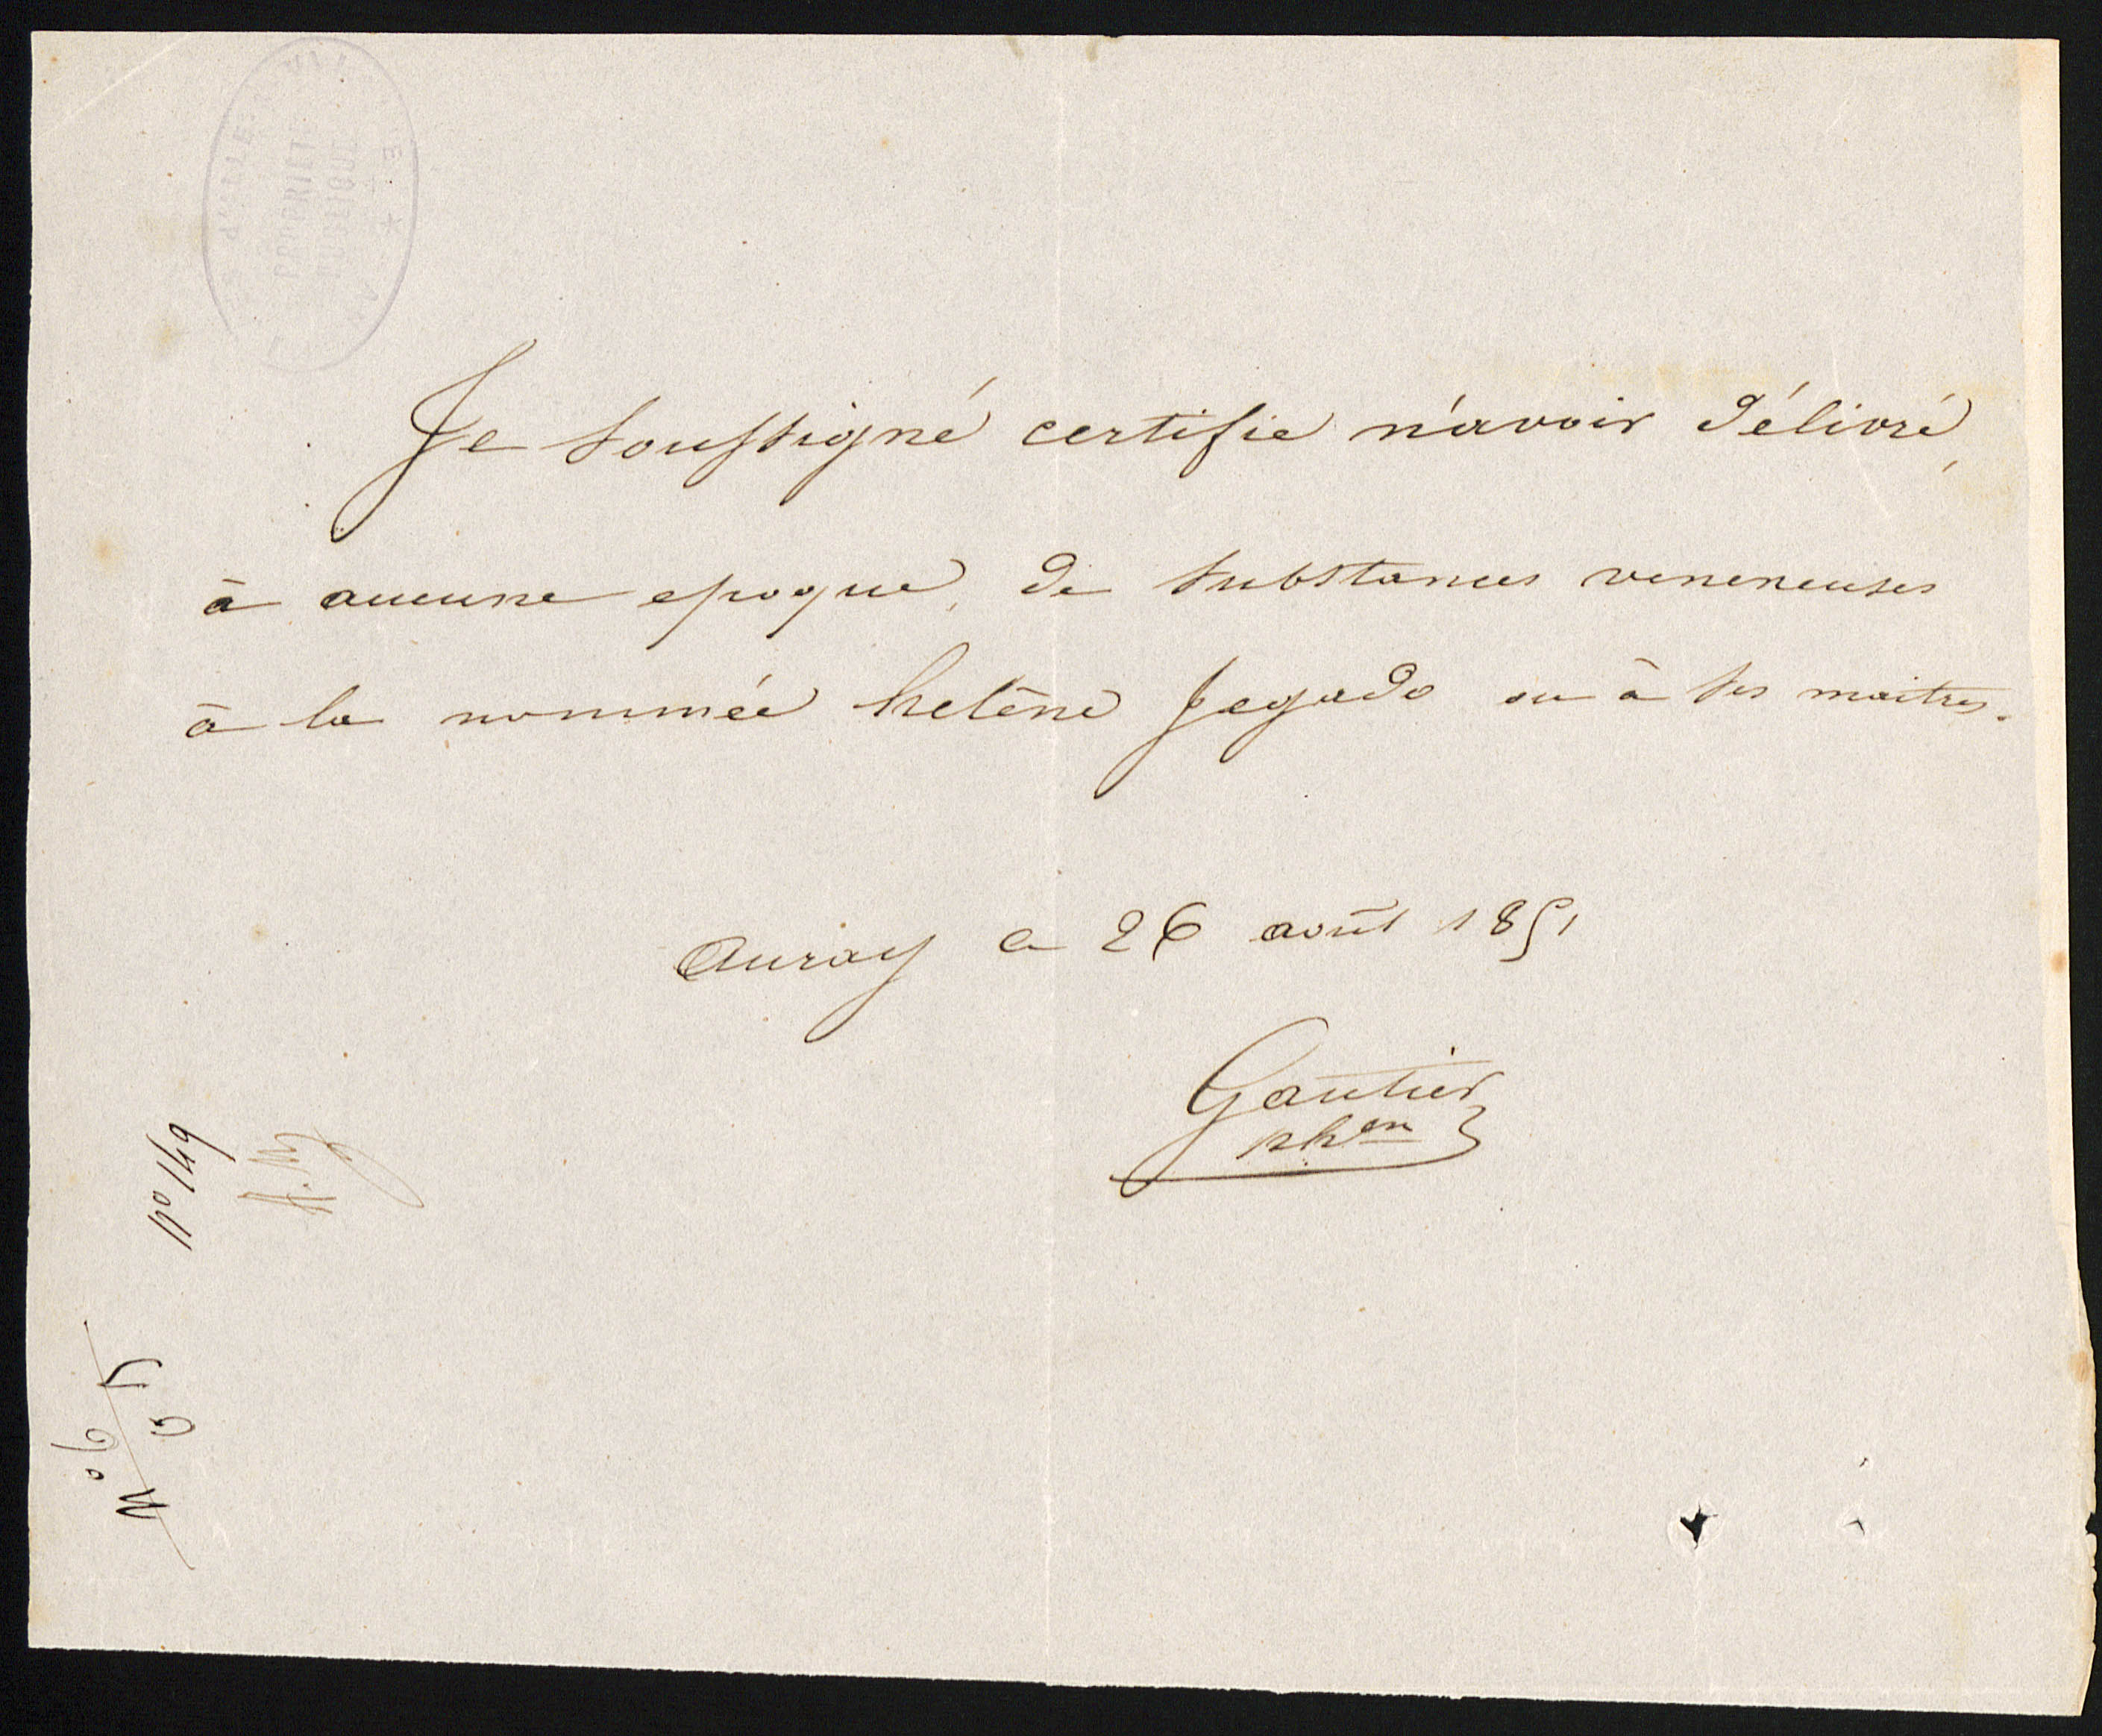 Je soussigné certifie n'avoir délivré,
à aucune epoque, de substances veneneuses
à la nommée helène Jegado ou à ses maitres.
Auray le 26 août 1851
Gautier
phen
n° 149
N° 6
PROPRIÉTÉ
PUBLIQUE